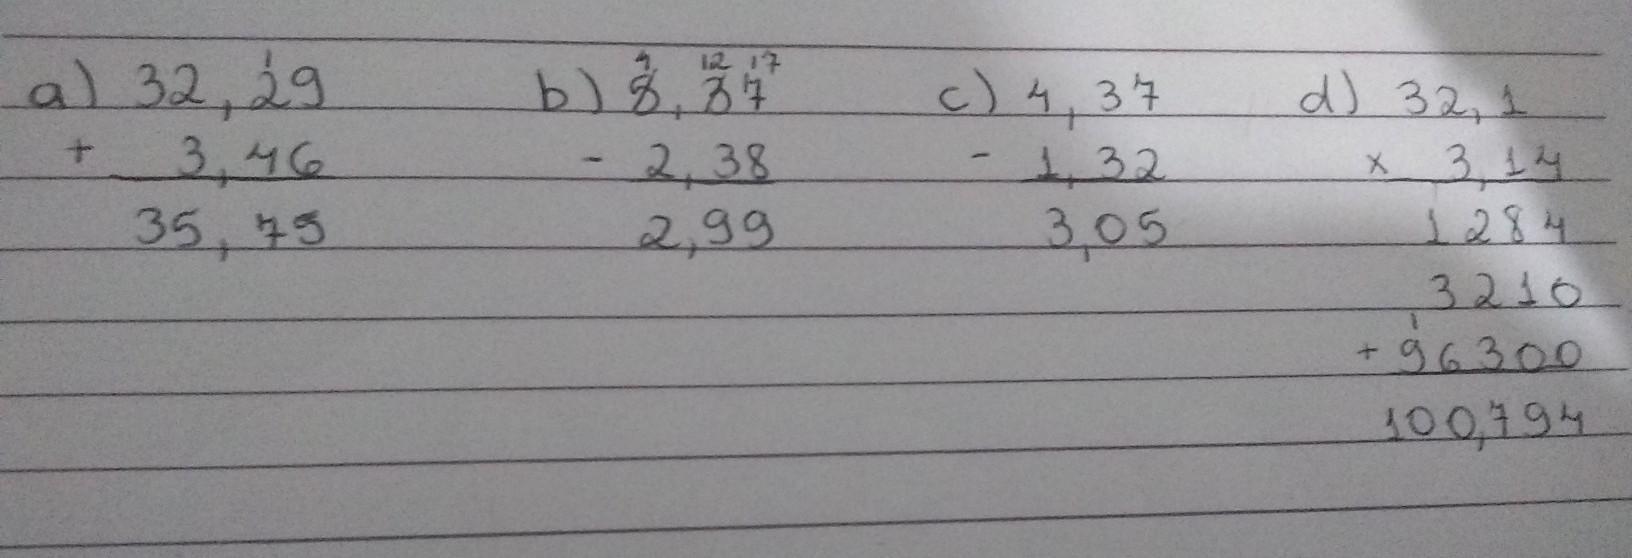 1 4 12 17
a) 32,29 b) 5,37 c) 4,37 d) 32,1
+ 3,46 - 2,38 - 1,32 x 3,14
35,75 2,99 3,05 1284
3210
1
+ 96300
100,794